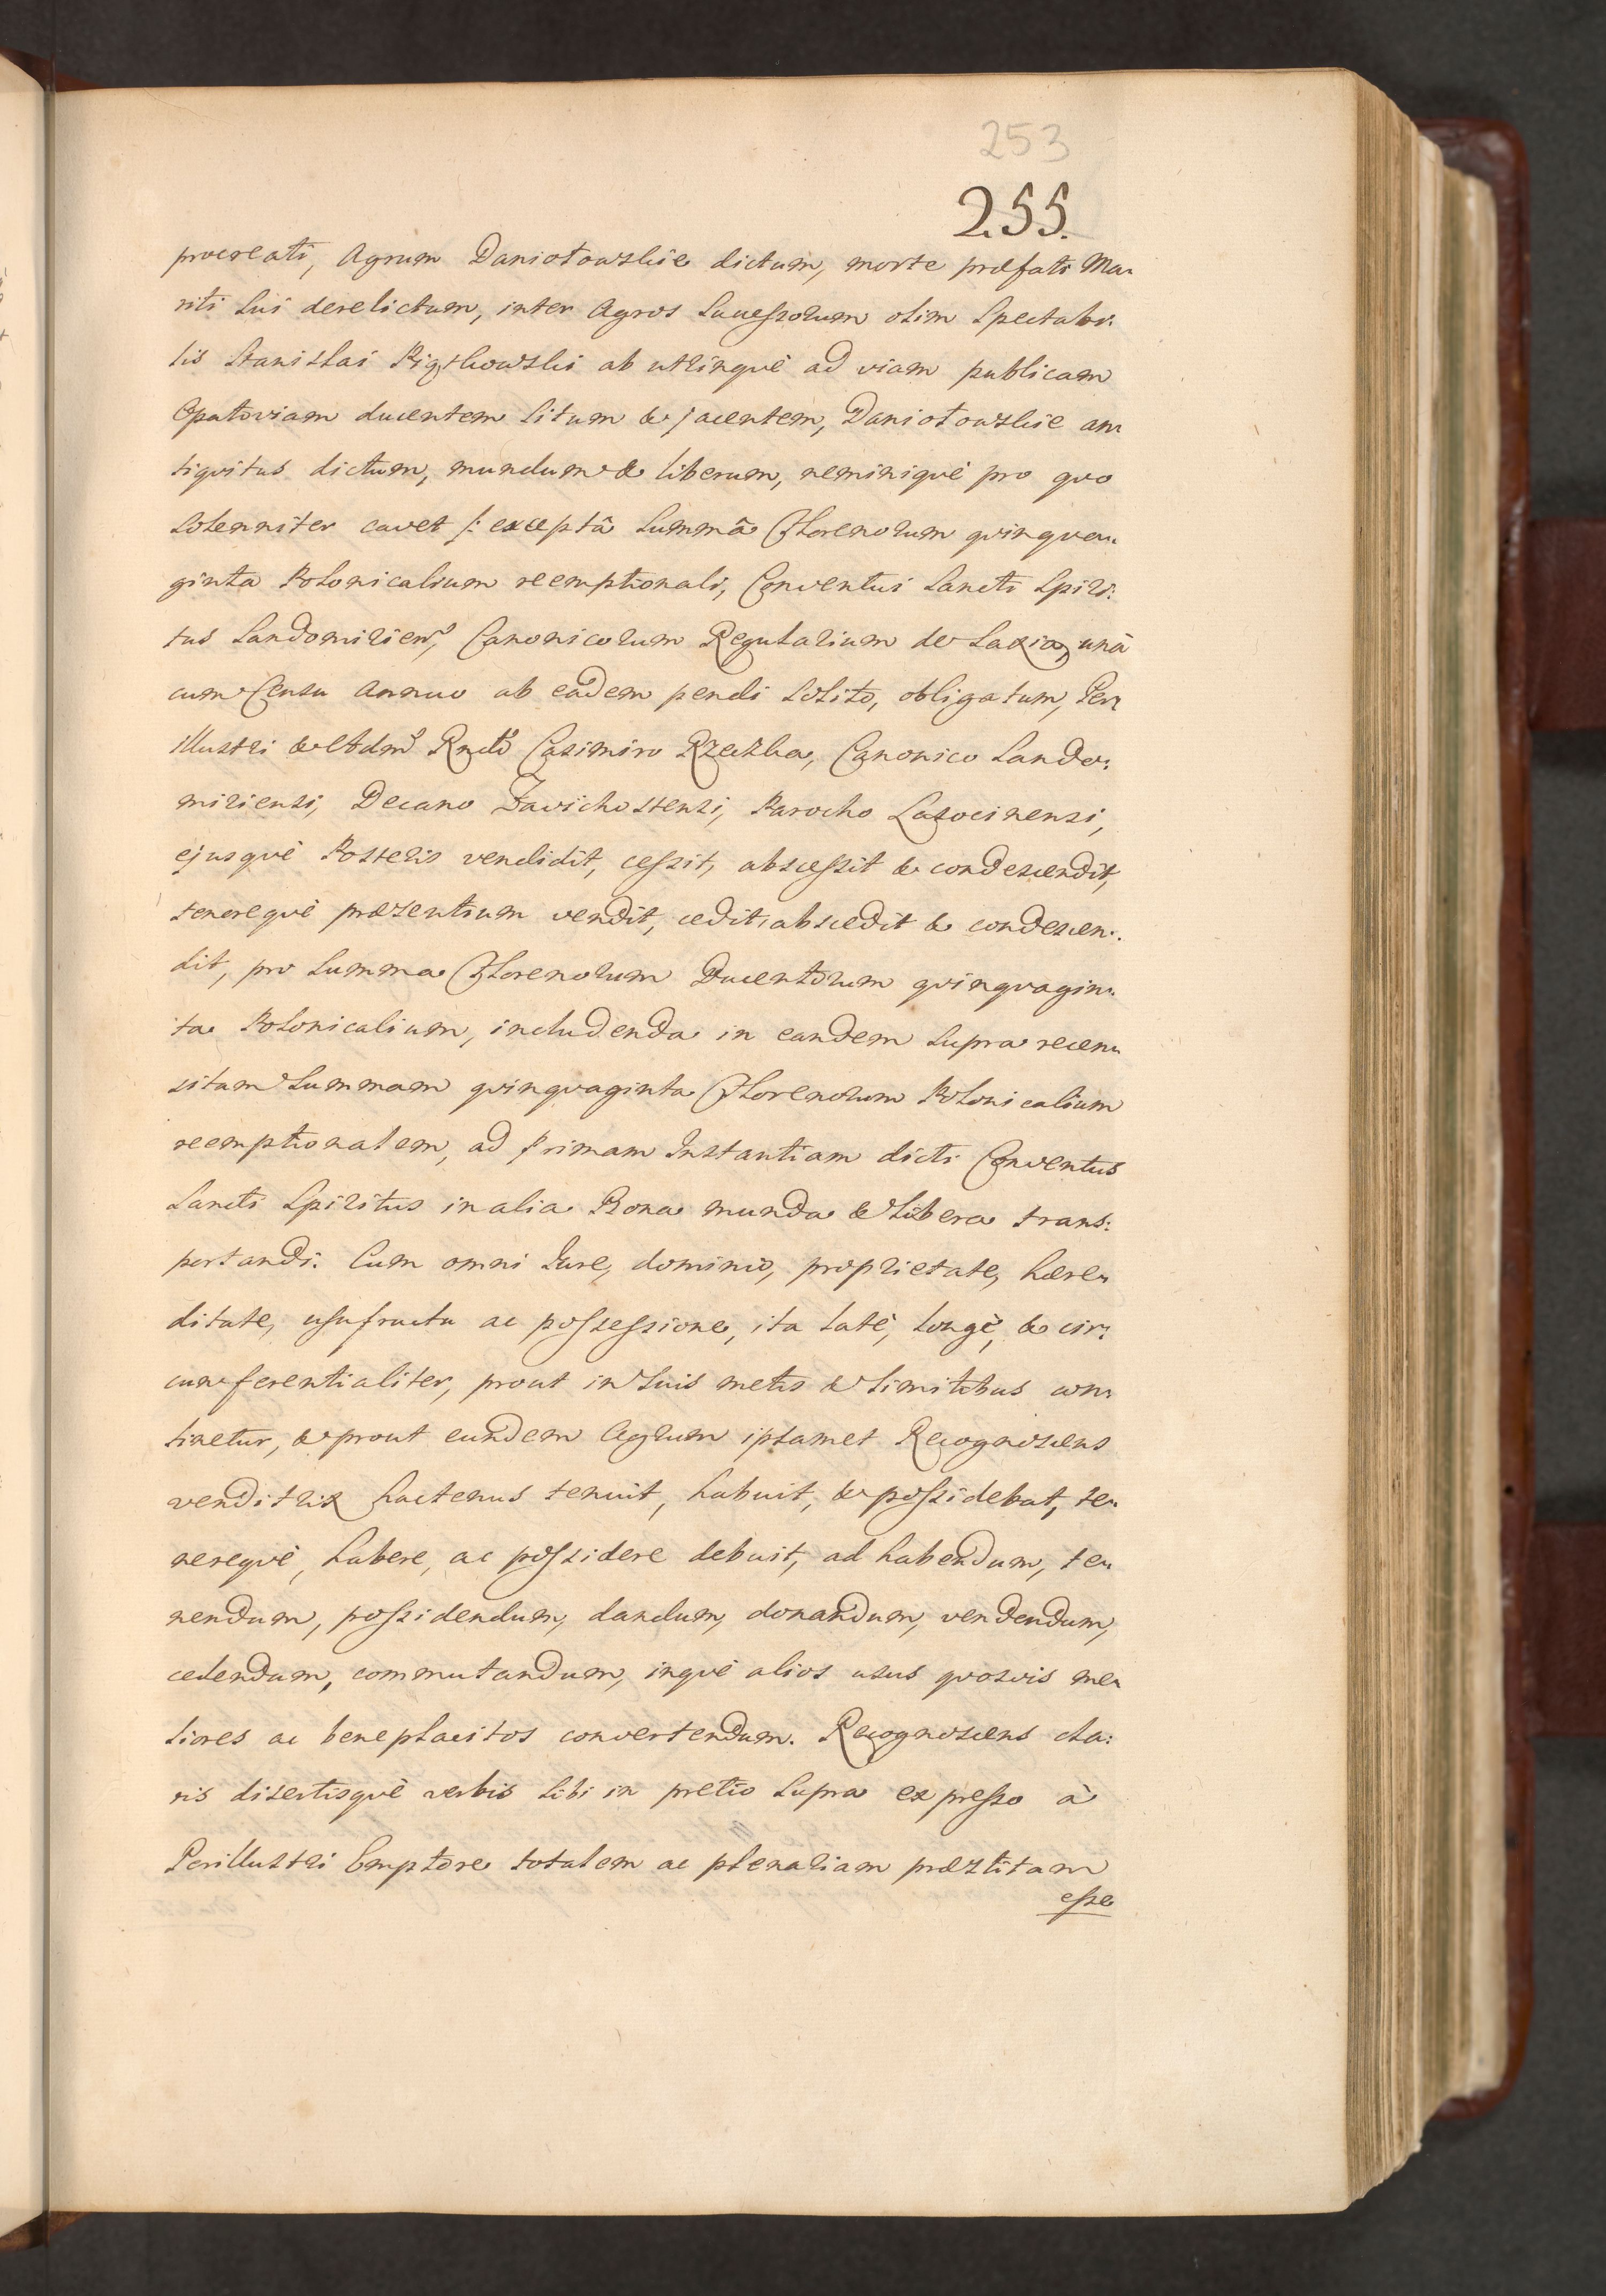 253
255.
procreati, Agrum Daniołowskie dictum, morte præfati Ma-
riti sui derelictum, inter Agros Successorum olim Spectabi:
lis Stanislai Piątkowski ab utrinquè ad viam publicam
Opatoviam ducentem situm & jacentem, Daniołowskie an-
tiqvitus dictum, mundum & liberum, neminiquè pro quo
solenniter cavet /: exceptâ summâ Florenorum qvinqva-
ginta Polonicalium reemptionali, Conventui Sancti Spiri:
tus Sandomirien, Canonicorum Regularium de Saxia, unà
cum Censu annuo ab eâdem pendi solito, obligatum, Per
illustri & Adm Rndo Casimiro Rzeszka, Canonico Sando:
miriensi, Decano Zavichostensi, Parocho Lasocinensi,
ejusquè Posteris vendidit, cessit, abscessit & condescendit,
tenorequè præsentium vendit, cedit, abscedit & condescen:
dit, pro summa Florenorum Ducentorum qvinqvagin-
ta Polonicalium, includenda in eandem supra recen-
sitam summam qvinqvaginta Florenorum Polonicalium
reemptionalem, ad primam Instantiam dicti Conventus
Sancti Spiritus in alia Bona munda & libera trans:
portandi. Cum omni Jure, dominio, proprietate, hære-
ditate, usufructu ac possessione, ita latè, longè, & cir-
cumferentialiter, prout in suis metis & limitibus con-
tinetur, & prout eundem Agrum ipsamet Recognoscens
venditrix hactenus tenuit, habuit, & possidebat, te-
nerequè, habere, ac possidere debuit, ad habendum, te-
nendum, possidendum, dandum, donandum, vendendum,
cedendum, commutandum, inquè alios usus qvosvis me-
liores ac beneplacitos convertendum. Recognoscens cla:
ris disertisquè verbis sibi in pretio supra expresso à
Perillustri Emptore totalem ac plenariam præstitam
esse